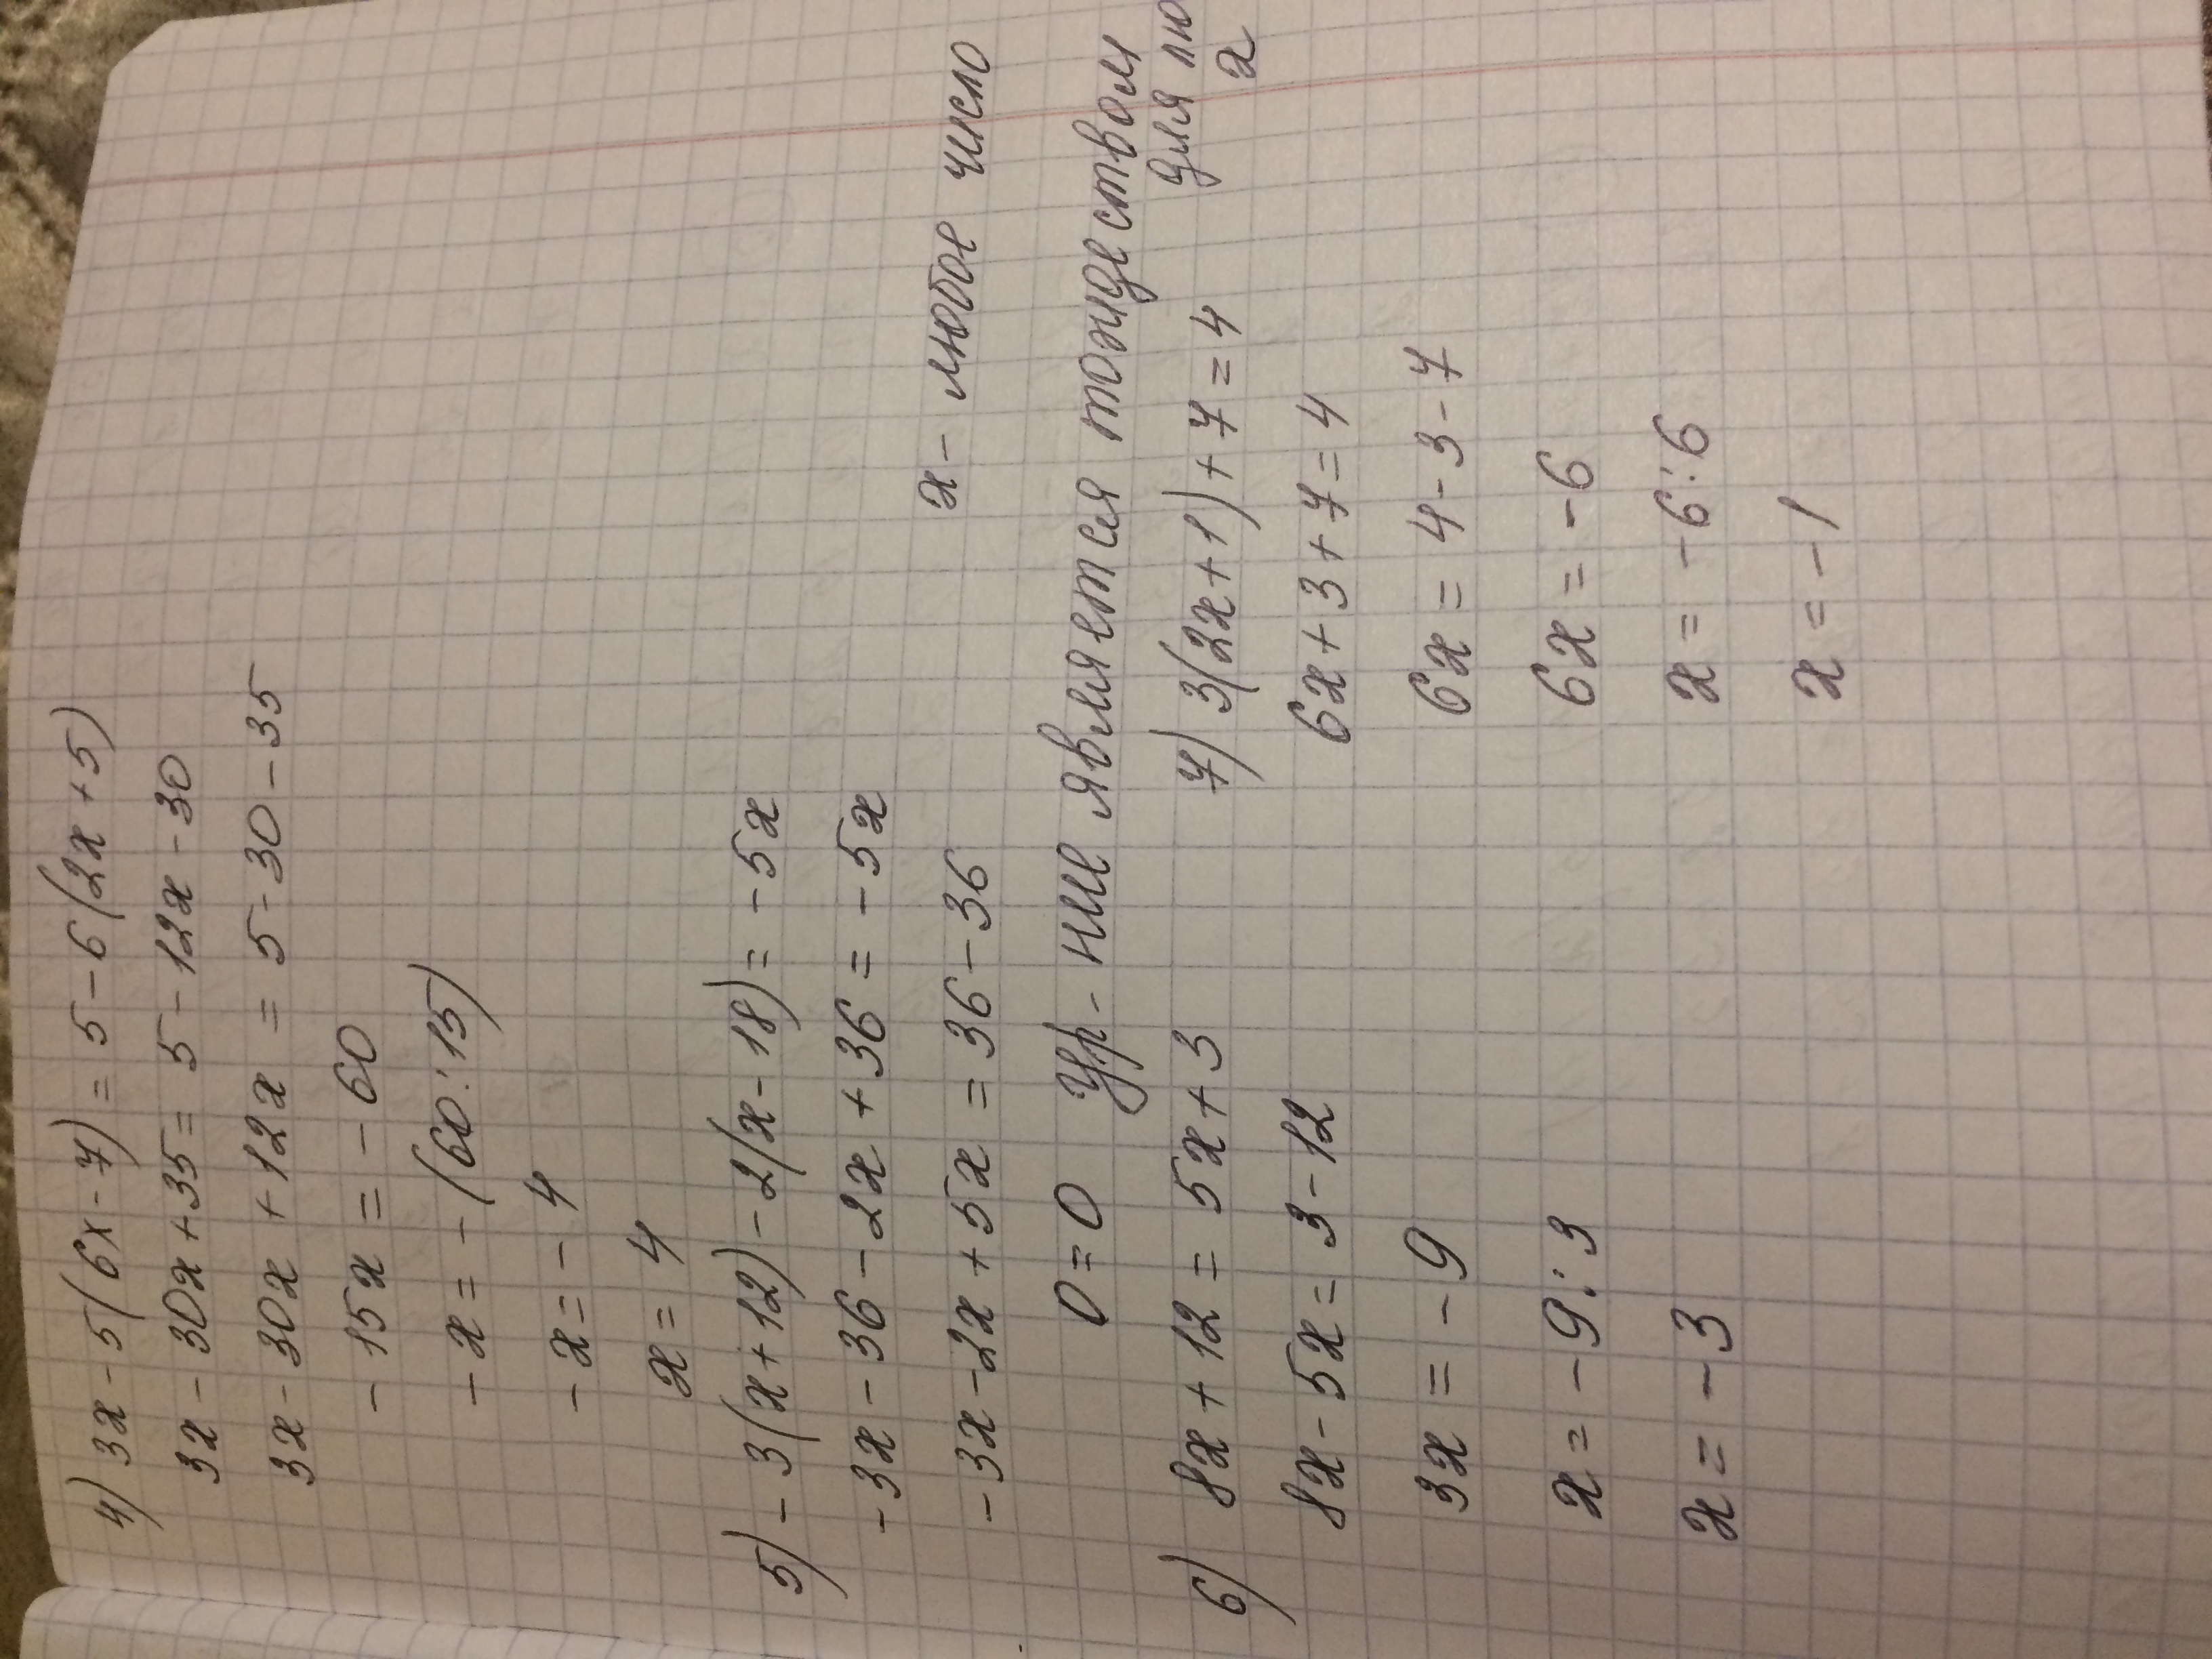 4) 3x - 5(6x - 7) = 5 - 6(2x + 5)
3x - 30x + 35 = 5 - 12x - 30
3x - 30x + 12x = 5 - 30 - 35
- 15x = - 60
- x = - (60 : 15)
- x = - 4
x = 4
5) - 3(x + 12) - 2(x - 18) = - 5x
- 3x - 36 - 2x + 36 = - 5x
- 3x - 2x + 5x = 36 - 36
x - любое число
0 = 0 Ур-ние является тождеством
для
x
6) 8x + 12 = 5x + 3
8x - 5x = 3 - 12
3x = - 9
x = - 9 : 3
x = - 3
7) 3(2x + 1) + 7 = 4
6x + 3 + 7 = 4
6x = 4 - 3 - 7
6x = - 6
x = - 6 : 6
x = - 1